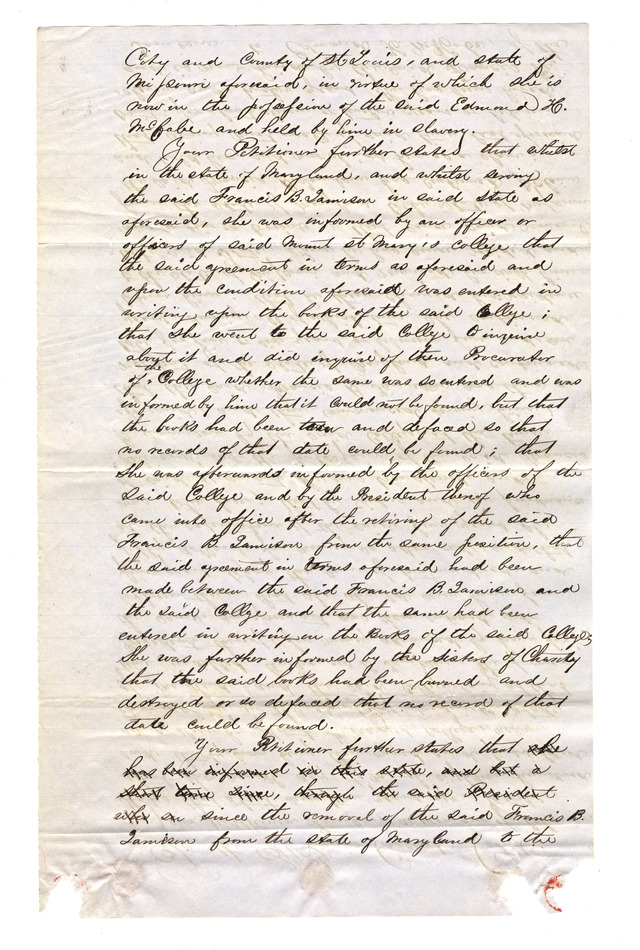 City and County of St Louis, and state of
Missouri aforesaid, in virtue of which she is
now in the possession of the said Edmond H.
McCabe and held by him in slavery.
Your Petitioner further states that whilst
in the state of Maryland, and whilst serving
the said Francis B. Jamison in said state as
aforesaid, she was informed by an officer or
officers of said Mount St Mary's College that
the said agreement in terms as aforesaid and
upon the condition aforesaid was entered in
writing upon the books of the said College;
that she went to the said College to inquire
about it and did inquire of then Procurator
of the College whether the same was so entered and was
informed by him that it could not be found, but that
the books had been torn and defaced so that
no records of that date could be found; that
she was afterwards informed by the officers of the
said College and by the President thereof who
came into office after the retiring of the said
Francis B. Jamison from the same position, that
the said agreement in terms aforesaid had been
made between the said Francis B. Jamison and
the said College and that the same had been
entered in writing on the Books of the said College;
She was further informed by the Sisters of Charity
that the said books had been burned and
destroyed or so defaced that no record of that
date could be found.
Your Petitioner further states that she
has been informed in this state, and but a
short time since, through the said President
who on since the removal of the said Francis B.
Jamison from the state of Maryland to the